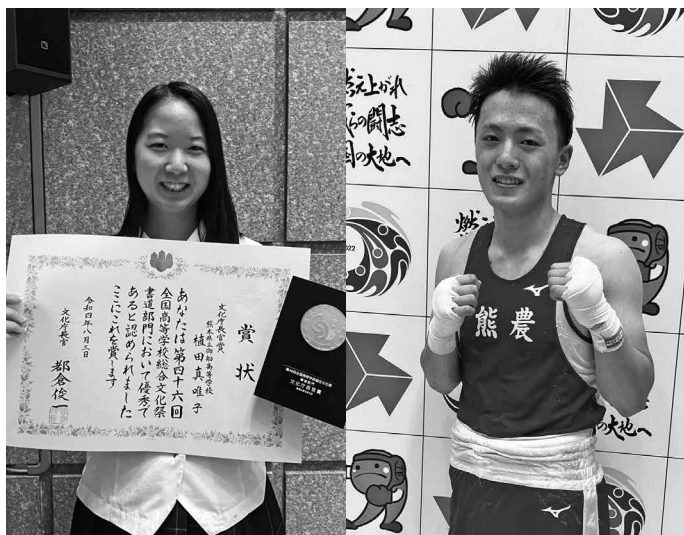 賞状
文化庁長官賞
熊本県立御船高等学校
植田真唯子
あなたは第四十六回
全国高等学校総合文化祭
書道部門において優秀で
あると認められました
ここにこれを賞します
令和四年八月三日
文化庁長官
都倉俊一
文化庁長官賞
燃え上がれ
の闘志
の大地へ
燃
2022
熊農
大地へ